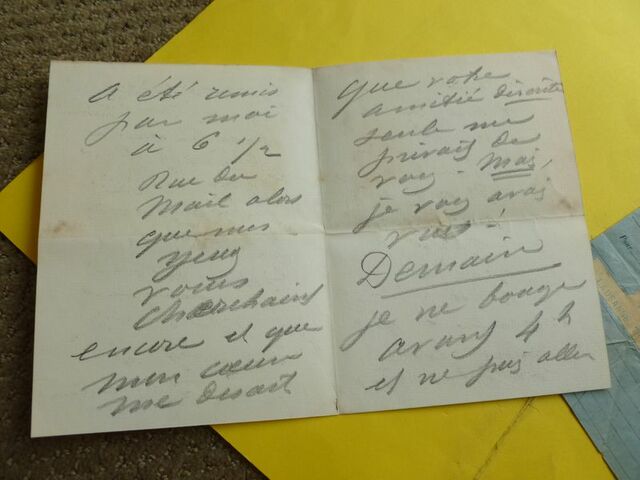 a été remis
par moi
à 6 1/2
Rue du
Mail alors
que mes
yeux
vous
cherchaient
encore et que
mon cœur
me disait
que votre
amitié discrète
seule me
privait de
vous. Mais,
je vous avais
vu !
Demain
je ne bouge
avant 4h
et ne puis aller